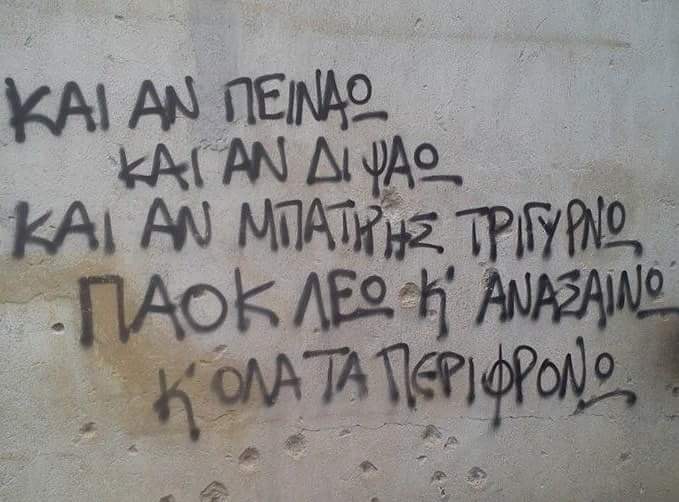 ΚΑΙ ΑΝ ΠΕΙΝΑΩ
ΚΑΙ ΑΝ ΔΙΨΑΩ
ΚΑΙ ΑΝ ΜΠΑΤΙΡΗΣ ΤΡΙΓΥΡΝΩ
ΠΑΟΚ ΛΕΩ Κ' ΑΝΑΣΑΙΝΩ
Κ' ΟΛΑ ΤΑ ΠΕΡΙΦΡΟΝΩ